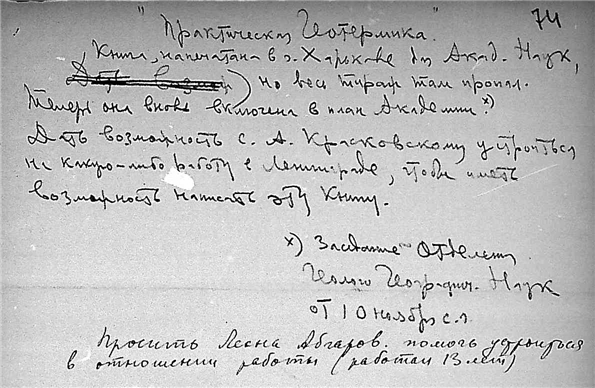 74
"Практическая Геотермика."
Книга, напечатана в г. Харькове для Акад. Наук,
но весь тираж там пропал.
Теперь она вновь включена в план Академии. х)
Дать возможность С. А. Красковскому устроиться
на какую-либо работу в Ленинграде, чтобы иметь
возможность написать эту книгу.
х) Заседание Отделен.
Геолого Географич. Наук
от 10 ноября с.г.
Просить Леона Абгаров. помочь устроиться
в отношении работы (работал 13 лет)